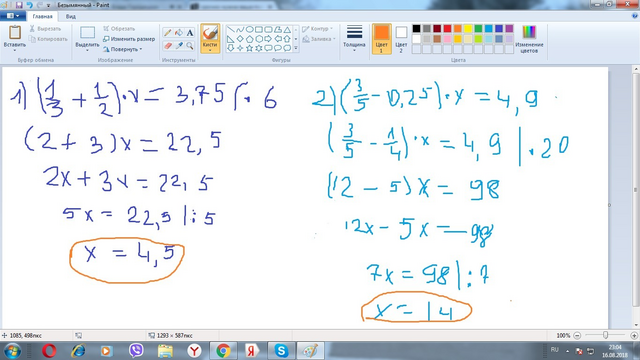 Безымянный - Paint
Главная Вид
Вставить
Вырезать
Копировать
Выделить
Обрезать
Изменить размер
Повернуть
Кисти
Контур
Заливка
Толщина
Цвет 1
Цвет 2
Изменение цветов
Буфер обмена Изображение Инструменты Фигуры Цвета
1) (1/3 + 1/2) · x = 3,75 | · 6
(2 + 3) x = 22,5
2x + 3x = 22,5
5x = 22,5 | : 5
x = 4,5
2) (3/5 - 0,25) · x = 4,9
(3/5 - 1/4) · x = 4,9 | · 20
(12 - 5) x = 98
12x - 5x = 98
7x = 98 | : 7
x = 14
1085, 498пкс
1293 × 587пкс
100%
RU
23:04
16.08.2018